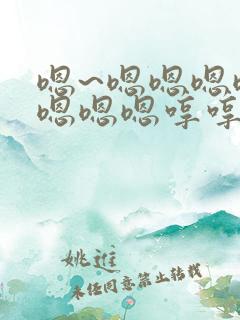 嗯~嗯嗯嗯
嗯嗯嗯哼哼
姚进
未经同意禁止转载